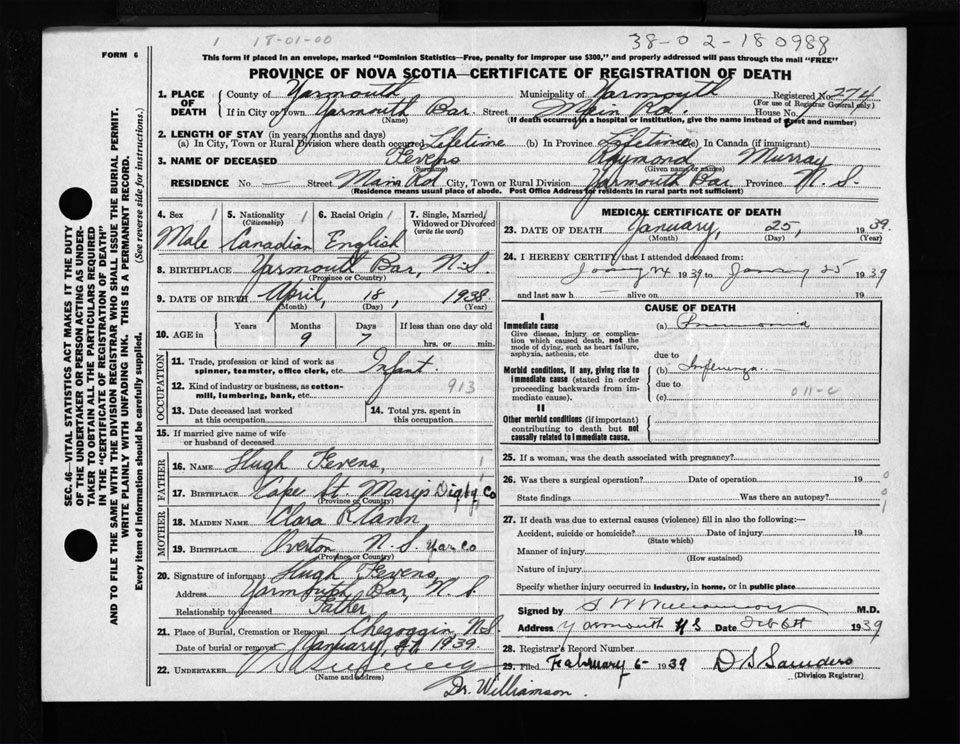 1 18-01-00
38-02-180988
FORM 6
This form if placed in an envelope, marked "Dominion Statistics—Free, penalty for improper use $300," and properly addressed will pass through the mail "FREE"
PROVINCE OF NOVA SCOTIA—CERTIFICATE OF REGISTRATION OF DEATH
1. PLACE OF DEATH County of Yarmouth Municipality of Yarmouth Registered No. 274
(For use of Registrar General only)
If in City or Town of Yarmouth Bar Street Main Rd. House No.
(Name) (If death occurred in a hospital or institution, give the name instead of street and number)
2. LENGTH OF STAY (in years, months and days)
(a) In City, Town or Rural Division where death occurred Lifetime (b) In Province Lifetime (c) In Canada (if immigrant)
3. NAME OF DECEASED Fevens Raymond Murray
(Surname) (Given name or names)
RESIDENCE No. — Street Main Rd City, Town or Rural Division Yarmouth Bar Province N. S.
(Residence means usual place of abode. Post Office Address for residents in rural parts not sufficient)
4. Sex 1 5. Nationality 1 6. Racial Origin 1 7. Single, Married, Widowed or Divorced 1
(Citizenship) (write the word)
Male Canadian English
8. BIRTHPLACE Yarmouth Bar, N.S.
(Province or Country)
9. DATE OF BIRTH April, 18, 1938
(Month) (Day) (Year)
10. AGE in Years Months Days If less than one day
9 7 hrs. or min.
OCCUPATION
11. Trade, profession or kind of work as spinner, teamster, office clerk, etc. Infant
12. Kind of industry or business, as cotton-mill, lumbering, bank, etc. 913
13. Date deceased last worked at this occupation
14. Total yrs. spent in this occupation
15. If married give name of wife or husband of deceased
FATHER
16. NAME Hugh Fevens,
17. BIRTHPLACE Cape St. Marys Digby Co
(Province or Country)
MOTHER
18. MAIDEN NAME Clara R. Cann
19. BIRTHPLACE Overton, N. S. Yar Co
(Province or Country)
20. Signature of informant Hugh Fevens
Address Yarmouth Bar, N. S.
Relationship to deceased Father
21. Place of Burial, Cremation or Removal Chegoggin, N.S.
Date of burial or removal January, 1939.
22. UNDERTAKER
(Name and address)
Dr. Williamson.
MEDICAL CERTIFICATE OF DEATH
23. DATE OF DEATH January, 25, 1939.
(Month) (Day) (Year)
24. I HEREBY CERTIFY that I attended deceased from:
24 1939 to 25 1939
and last saw h — alive on 19
CAUSE OF DEATH
I
Immediate cause (a) Pneumonia
Give disease, injury or complication which caused death, not the mode of dying, such as heart failure, asphyxia, asthenia, etc
due to
Morbid conditions, if any, giving rise to immediate cause (stated in order proceeding backwards from immediate cause). (b) Influenza
due to
(c) 011-c
II
Other morbid conditions (if important) contributing to death but not causally related to immediate cause.
25. If a woman, was the death associated with pregnancy?
26. Was there a surgical operation? Date of operation 19 0
State findings Was there an autopsy? 0
1
27. If death was due to external causes (violence) fill in also the following:—
Accident, suicide or homicide? Date of injury 19
(State which)
Manner of injury
(How sustained)
Nature of injury
Specify whether injury occurred in industry, in home, or in public place
Signed by S W Williamson M.D.
Address Yarmouth N S Date Feb 6th 1939
28. Registrar's Record Number
29. Filed February 6- 1939 D S Saunders
(Division Registrar)
SEC. 46—VITAL STATISTICS ACT MAKES IT THE DUTY
OF THE UNDERTAKER OR PERSON ACTING AS UNDER-
TAKER TO OBTAIN ALL THE PARTICULARS REQUIRED
IN THE "CERTIFICATE OF REGISTRATION OF DEATH"
AND TO FILE THE SAME WITH THE DIVISION REGISTRAR WHO SHALL ISSUE THE BURIAL PERMIT.
WRITE PLAINLY WITH UNFADING INK. THIS IS A PERMANENT RECORD.
Every item of information should be carefully supplied. (See reverse side for instructions.)